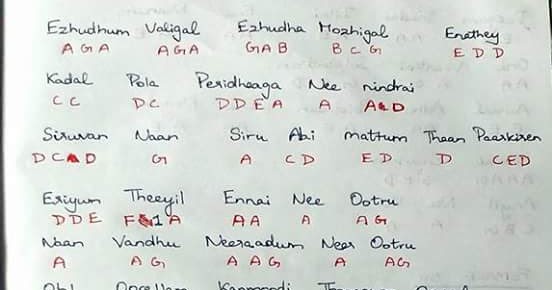 Ezhudhum Valigal Ezhudha Mozhigal Enathey
A G A A G A G A B B C G E D D
Kadal Pola Peridheaga Nee nindrai
C C D C D D E A A A D
Siruvan Naan Siru Alai mattum Thaan Paarkiren
D C D G A C D E D D C E D
Eriyum Theeyil Ennai Nee Ootru
D D E F 1 A A A A A G
Naan Vandhu Neeraadum Neer Ootru
A A G A A G A A G